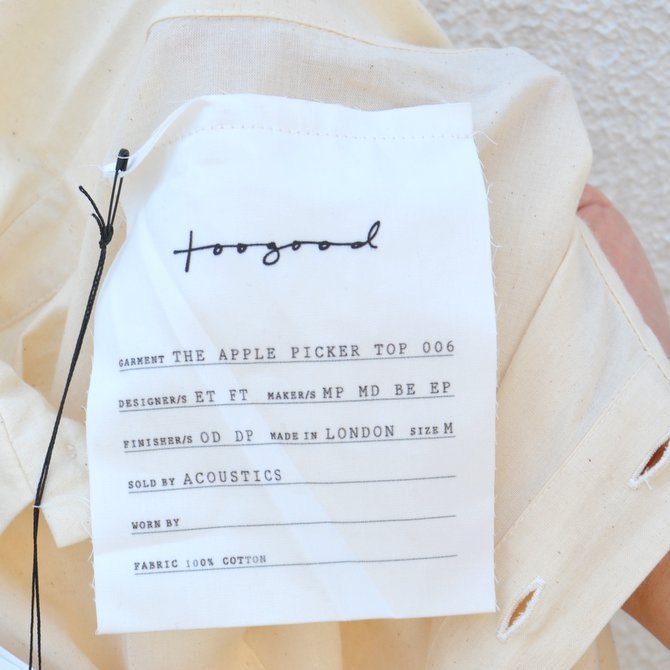 toogood
GARMENT THE APPLE PICKER TOP 006
DESIGNER/S ET FT MAKER/S MP MD BE EP
FINISHER/S OD DP MADE IN LONDON SIZE M
SOLD BY ACOUSTICS
WORN BY
FABRIC 100% COTTON